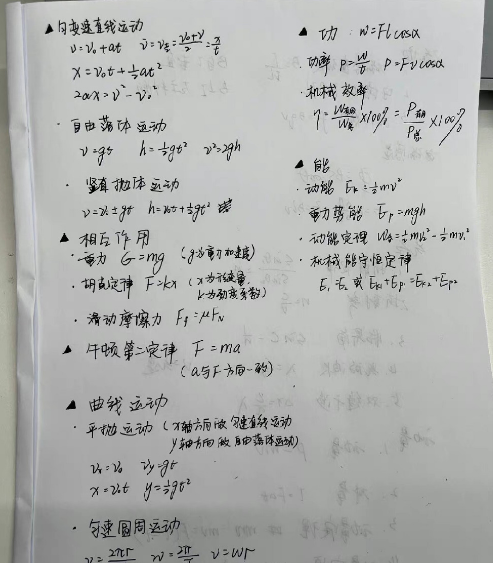 ▲匀变速直线运动
v=v₀+at v̄=v_{t/2}=\frac{v₀+v}{2}=\frac{x}{t}
x=v₀t+½at²
2ax=v²-v₀²
·自由落体运动
v=gt h=½gt² v²=2gh
·竖直抛体运动
v=v₀±gt h=v₀t±½gt²
▲相互作用
·重力 G=mg (g为重力加速度)
·胡克定律 F=kx (x为形变量,
k为劲度系数)
·滑动摩擦力 F_f=μF_N
▲牛顿第二定律 F=ma
(a与F方向一致)
▲曲线运动
·平抛运动(x轴方向做匀速直线运动
y轴方向做自由落体运动)
v_x=v₀ v_y=gt
x=v₀t y=½gt²
·匀速圆周运动
v=\frac{2πr}{T} w=\frac{2π}{T} v=wr
▲功:W=Flcosα
·功率 P=\frac{W}{t} P=Fvcosα
·机械效率
η=\frac{W有用}{W总}×100%=\frac{P有用}{P总}×100%
▲能
·动能 E_k=½mv²
·重力势能 E_p=mgh
·动能定理 W总=½mv₂²-½mv₁²
·机械能守恒定律
E₁=E₂ 或 E_{k1}+E_{p1}=E_{k2}+E_{p2}